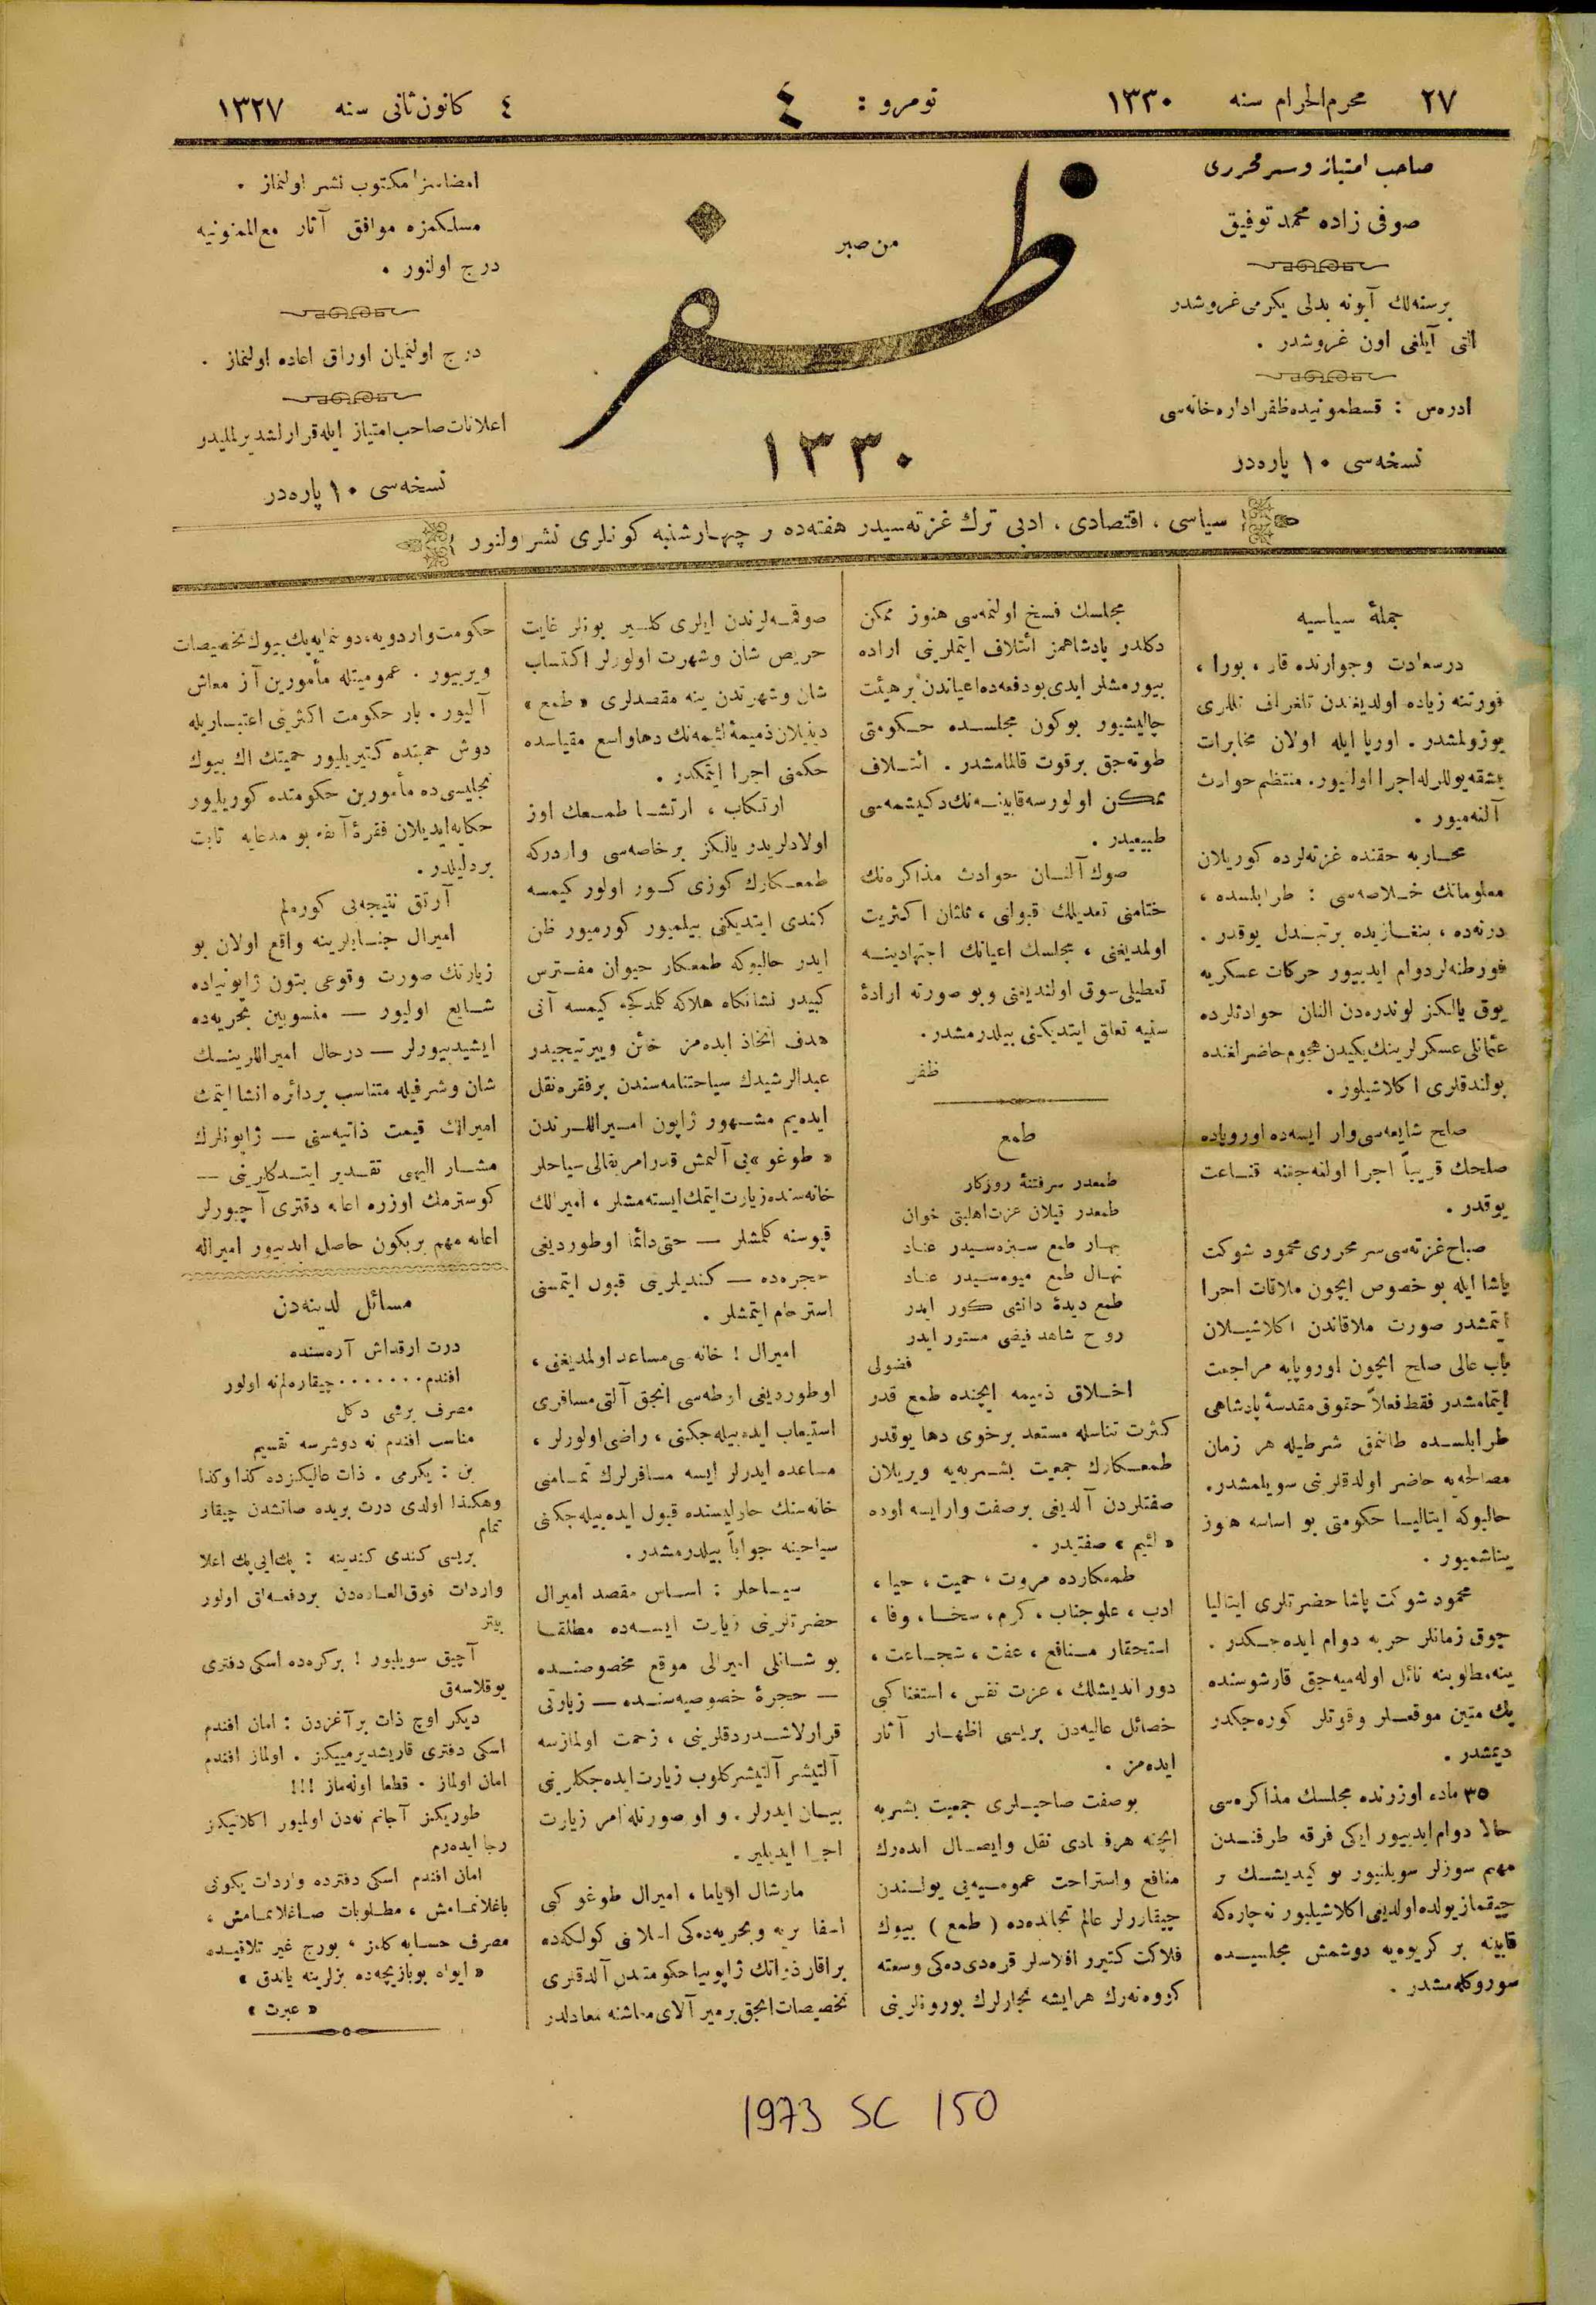 ٢٧ محرم الحرام سنه ١٣٣٠
نومرو : ٤
٤ كانون ثانی سنه ١٣٢٧
صاحب امتياز و سرمحرری
صوفی زاده محمد توفيق
برسنه‌لك آبونه بدلی يكرمی غروشدر
التی آيلغی اون غروشدر .
ادره‌س : قسطمونيده ظفر اداره‌خانه‌سی
نسخه‌سی ١٠ پاره‌در
من صبر
ظفر
١٣٣٠
امضاسز مكتوب نشر اولنماز .
مسلكمزه موافق آثار مع الممنونيه
درج اولنور .
درج اولنميان اوراق اعاده اولنماز .
اعلانات صاحب امتياز ايله قرارلشديرلمليدر
نسخه‌سی ١٠ پاره‌در
سياسی ، اقتصادی ، ادبی ترك غزته‌سيدر هفته‌ده بر چهارشنبه كونلری نشر اولنور
جملۀ سياسيه
درسعادت وجوارنده قار ، بورا ،
فورتنه زياده اولديغندن تلغراف تللری
بوزولمشدر . اوروپا ايله اولان مخابرات
بشقه يوللرله اجرا اولنيور. منتظم حوادث
آلنه‌ميور .
محاربه حقنده غزته‌لرده كوريلان
معلوماتك خلاصه‌سی : طرابلسده ،
درنه‌ده ، بنغازيده بر تبدل يوقدر .
فورطنه‌لر دوام ايدييور حركات عسكريه
يوق يالكز لوندره‌دن النان حوادثلرده
عثمانلی عسكرلرينك يكيدن هجوم حاضرلغنده
بولندقلری اكلاشيلور .
صلح شايعه‌سی وار ايسه‌ده اوروپاده
صلحك قريباً اجرا اولنه‌جغنه قناعت
يوقدر .
صباح غزته‌سی سر محرری محمود شوكت
پاشا ايله بو خصوص ايچون ملاقات اجرا
ايتمشدر صورت ملاقاتدن اكلاشيلان
باب عالی صلح ايچون اوروپايه مراجعت
ايتمامشدر فقط فعلاً حقوق مقدسۀ پادشاهی
طرابلسده طانمق شرطيله هر زمان
مصالحه‌يه حاضر اولدقلرنی سويلمشدر.
حالبوكه ايتاليا حكومتی بو اساسه هنوز
يناشميور .
محمود شوكت پاشا حضرتلری ايتاليا
چوق زمانلر حربه دوام ايده‌جكدر .
ينه مطلوبنه نائل اوله‌ميه‌جق قارشوسنده
پك متين موقعلر وقوتلر كوره‌جكدر
ديمشدر .
٣٥ ماده اوزرنده مجلسك مذاكره‌سی
حالا دوام ايدييور ايكی فرقه طرفندن
مهم سوزلر سويلنيور بو كيديشك بر
چيقماز يولده اولديغی اكلاشيلييور نه چاره‌كه
قابينه بر كريوه‌يه دوشمش مجلسيده
سوروكله‌مشدر .
مجلسك فسخ اولنمه‌سی هنوز ممكن
دكلدر پادشاهمز ائتلاف ايتملرينی اراده
بيورمشلر ايدی بو دفعه‌ده اعياندن بر هيئت
چاليشيور بوكون مجلسده حكومتی
طوته‌جق بر قوت قالمامشدر . ائتلاف
ممكن اولورسه قابينه‌نك دكيشمه‌سی
طبيعيدر .
صوك آلنان حوادث مذاكره‌نك
ختامنی تعديلك قبولنی ، ثلثان اكثريت
اولمديغنی ، مجلسك اعيانك اجتهادينه
تعطيلی سوق اولنديغنی وبو صورته ارادۀ
سنيه تعلق ايتديكنی بيلديرمشدر.
ظفر
طمع
طمعدر سرفتنۀ روزكار
طمعدر قيلان عزت اهلينی خوان
بهار طمع سبزه‌سيدر عناد
نهال طمع ميوه‌سيدر عناد
طمع ديدۀ دانشی كور ايدر
روح شاهد فيضی مستور ايدر
فضولی
اخلاق ذميمه ايچنده طمع قدر
كثرت تناسله مستعد بر خوی دها يوقدر
طمعكارك جمعيت بشريه‌يه ويريلان
صفتلردن آلديغی بر صفت وار ايسه اوده
« لئيم » صفتيدر .
طمعكارده مروت ، حميت ، حيا ،
ادب ، علوجناب ، كرم ، سخا ، وفا ،
استحقار منافع ، عفت ، شجاعت ،
دورانديشلك ، عزت نفس ، استغنا كبی
خصائل عاليه‌دن بريسی اظهار آثار
ايده‌مز .
بو صفت صاحبلری جمعيت بشريه
ايچنه هر فنادی نقل وايصال ايده‌رك
منافع واستراحت عموميه‌يی يولندن
چيقارلر عالم تجاتده‌ده ( طمع ) بيوك
فلاكت كتيرر افلاسلر قره‌دی‌ده‌كی وسعته
كووه‌نه‌رك هر ايشه تجارلرك بورونلرينی
صوقمه‌لرندن ايلری كلير بونلر غايت
حريص شان وشهرت اولورلر اكتساب
شان وشهرتدن ينه مقصدلری « طمع »
دينيلان ذميمۀ لئيمه‌نك دها واسع مقياسده
حكمنی اجرا ايتمكدر .
ارتكاب ، ارتشا طمعك اوز
اولادلريدر يالكز بر خاصه‌سی واردركه
طمعكارك كوزی كور اولور كيمسه
كندی ايتديكنی بيلميور كورميور ظن
ايدر حالبوكه طمعكار حيوان مفترس
كبيدر نشانكاه هلاكه كلمدكجه كيمسه آنی
هدف اتخاذ ايده‌مز خائن وييرتيجيدر
عبدالرشيدك سياحتنامه‌سندن بر فقره نقل
ايده‌يم مشهور ژاپون اميراللرندن
« طوغو » يی آلتمش قدر امريقالی سياحلر
خانه‌سنده زيارت ايتمك ايسته‌مشلر ، اميرالك
قپوسنه كلمشلر — حتی دائما اوطورديغی
حجره‌ده — كنديلرينی قبول ايتمسنی
استرحام ايتمشلر .
اميرال ! خانه‌سی مساعد اولمديغنی ،
اوطورديغی اوطه‌سی انجق آلتی مسافری
استيعاب ايده‌بيله‌جكنی ، راضی اولورلر ،
مساعده ايدرلر ايسه مسافرلرك تمامنی
خانه‌سنك حاوليسنده قبول ايده‌بيله‌جكنی
سياحينه جواباً بيلدرمشدر .
سياحلر : اساس مقصد اميرال
حضرتلرينی زيارت ايسه‌ده مطلقا
بو شانلی اميرالی موقع مخصوصنده
— حجرۀ خصوصيه‌سنده — زيارتی
قرارلاشدردقلرينی ، زحمت اولمازسه
آلتيشر آلتيشر كلوب زيارت ايده‌جكلرينی
بيان ايدرلر . و او صورتله امر زيارت
اجرا ايديلير .
مارشال اوياما ، اميرال طوغو كبی
براقار ذواتك ژاپونيا حكومتدن آلدقلری
تخصيصات انجق بر مير آلای معاشنه معادلدر
حكومت واردويه ، دونمايه پك بيوك تخصيصات
ويرييور . عموميتله مأمورين آز معاش
آليور . بار حكومت اكثريتی اعتباريله
دوش حميتده كتيريليور حميتك اك بيوك
تجليسی ده مأمورين حكومتده كوريليور
حكايه ايديلان فقرۀ آتيه بو مدعايه ثابت
بر دليلدر .
آرتق نتيجه‌يی كوره‌لم
اميرال جنابلرينه واقع اولان بو
زيارتك صورت وقوعی بتون ژاپونياده
شايع اوليور — منسوبين بحريه‌ده
ايشيدييورلر — درحال اميراللرينك
شان وشرفيله متناسب بر دائره انشا ايتمك
اميرالك قيمت ذاتيه‌سنی — ژاپونلرك
مشار اليهی تقدير ايتدكلرينی —
كوسترمك اوزره اعانه دفتری آچيورلر
اعانه مهم بر يكون حاصل ايدييور اميراله
مسائل لدينه‌دن
درت ارقداش آره‌سنده
افندم ....... چيقاره‌لم نه اولور
مصرف برشی دكل
مناسب افندم نه دوشرسه تقسيم
بن : يكرمی . ذات عاليكزده كذا وكذا
وهكذا اولدی درت بريده صاتشدن چيقار
تمام
بريسی كندی كندينه : پك ايی پك اعلا
واردات فوق العاده‌دن بردفعه‌لق اولور
بيتر
آچيق سويليور ! بركره‌ده اسكی دفتری
يوقلاسه‌ق
ديكر اوچ ذات بر آغزدن : امان افندم
اسكی دفتری قاريشديرمييكز . اولماز افندم
امان اولماز . قطعا اوله‌ماز !!!
طوريكز آجانم نه‌دن اولميور اكلاتيكز
رجا ايده‌رم
امان افندم اسكی دفترده واردات يكونی
باغلانمامش ، مطلوبات صاغلانمامش ،
مصرف حسابه كلمز ، بورج غير تلافيده
« ايواه بو بازيچه‌ده بزلرينه ياندق »
« عبرت »
1973 SC 150